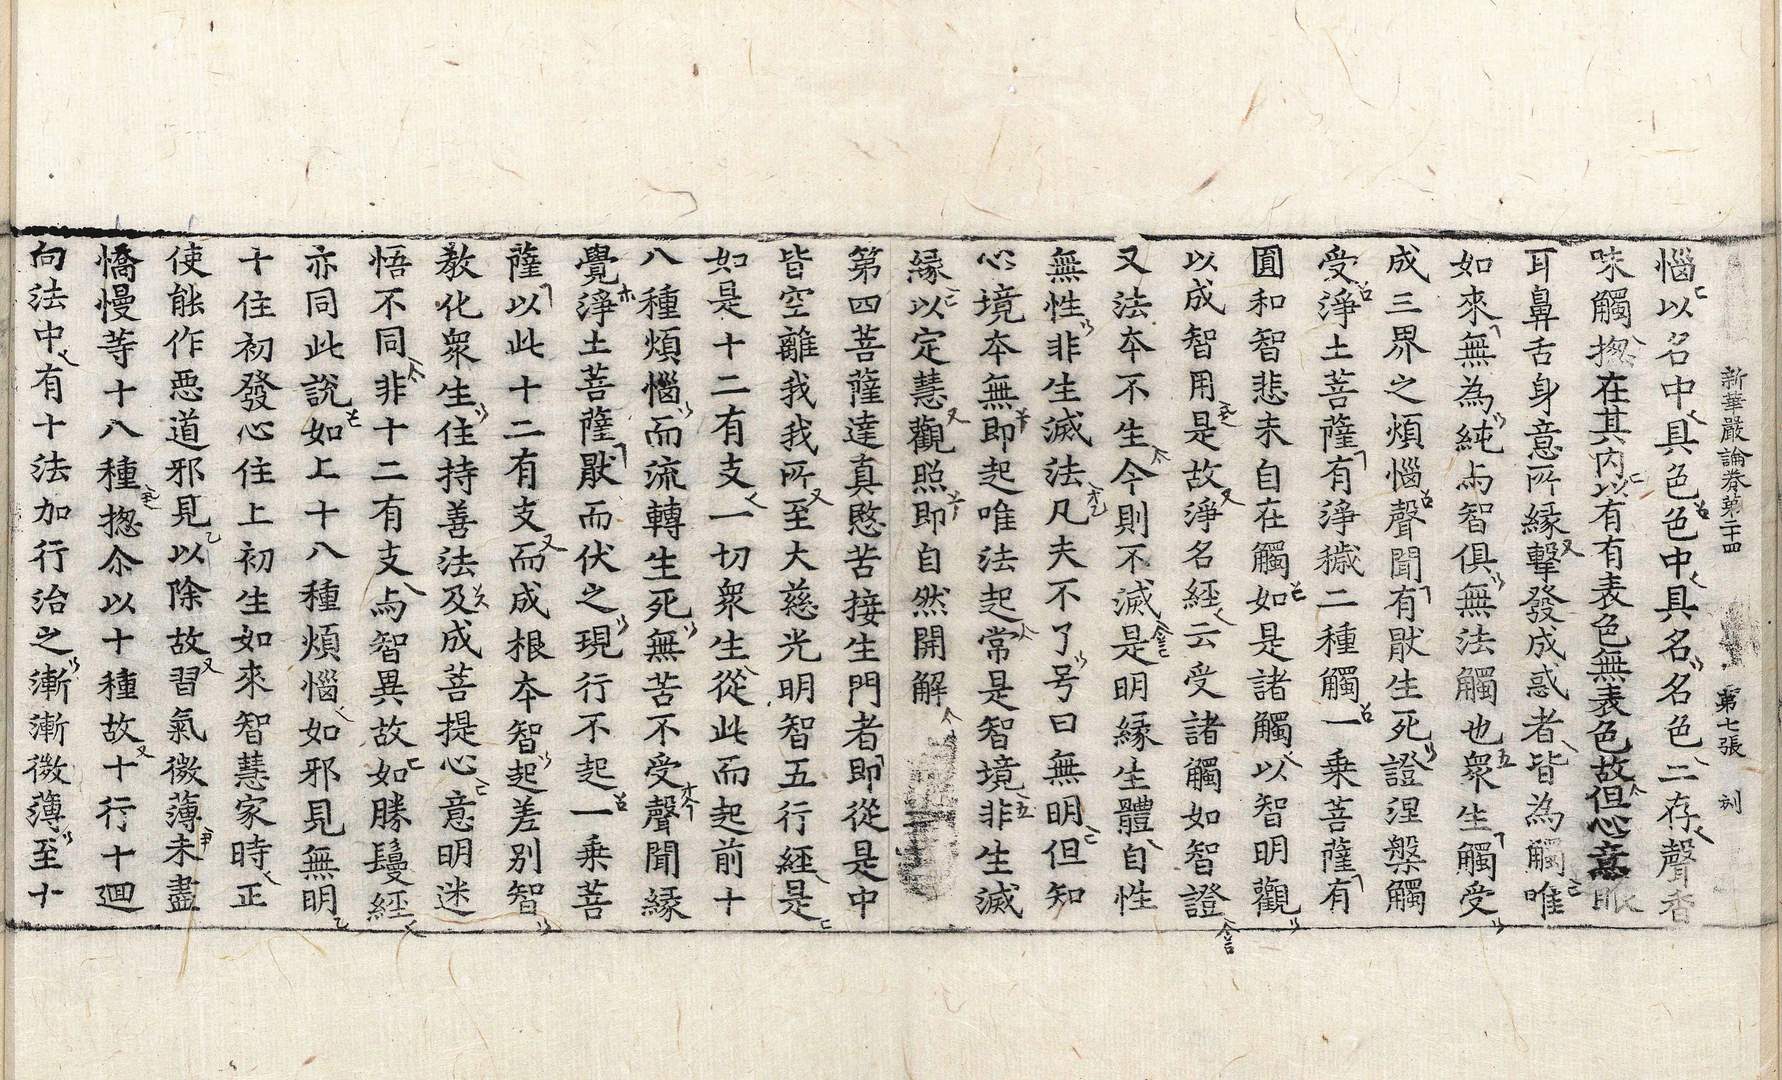 新華嚴論卷第二十四　第七張　刻
惱以名中具色色中具名名色二存聲香
味觸揔在其內以有有表色無表色故但心意眼
耳鼻舌身意所緣擊發成惑者皆為觸唯
如來無為純与智俱無法觸也衆生觸受
成三界之煩惱聲聞有猒生死證涅槃觸
受淨土菩薩有淨穢二種觸一乘菩薩有
圓和智悲未自在觸如是諸觸以智明觀
以成智用是故淨名經云受諸觸如智證
又法本不生今則不滅是明緣生體自性
無性非生滅法凡夫不了号曰無明但知
心境本無即起唯法起常是智境非生滅
緣以定慧觀照即自然開解
第四菩薩達真愍苦接生門者即從是中
皆空離我我所至大慈光明智五行經是
如是十二有支一切衆生從此而起前十
八種煩惱而流轉生死無苦不受聲聞緣
覺淨土菩薩猒而伏之現行不起一乘菩
薩以此十二有支而成根本智起差別智
教化衆生住持善法及成菩提心意明迷
悟不同非十二有支与智異故如勝鬘經
亦同此說如上十八種煩惱如邪見無明
十住初發心住上初生如來智慧家時正
使能作惡道邪見以除故習氣微薄未盡
憍慢等十八種揔尒以十種故十行十迴
向法中有十法加行治之漸漸微薄至十